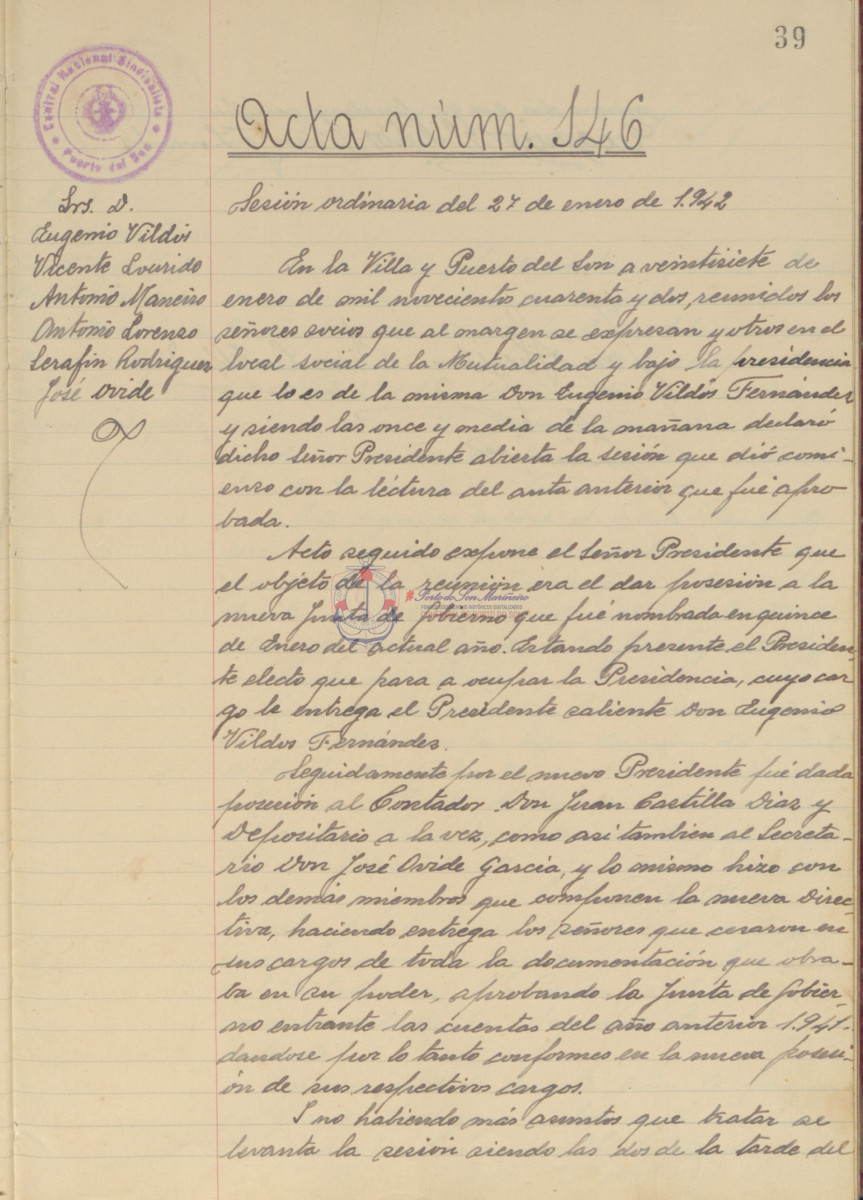 39
Central Nacional Sindicalista
Puerto del Son
Acta núm. 146
Srs. D.
Eugenio Vildós
Vicente Lourido
Antonio Maneiro
Antonio Lorenzo
Serafin Rodriguez
José Ovide
Sesión ordinaria del 27 de enero de 1.942
En la Villa y Puerto del Son a veintisiete de
enero de mil novecientos cuarenta y dos, reunidos los
señores socios que al margen se expresan y otros en el
local social de la Mutualidad y bajo la presidencia
que lo es de la misma Don Eugenio Vildós Fernández
y siendo las once y media de la mañana declaró
dicho Señor Presidente abierta la sesión que dió comi-
enzo con la léctura del anta anterior que fué apro
bada.
Acto seguido expone el Señor Presidente que
el objeto de la reunión era el dar posesión a la
nueva Junta de gobierno que fué nombrada en quince
de Enero del actual año. Estando presente el Presiden-
te electo que pasa a ocupar la Presidencia, cuyo car-
go le entrega el Presidente saliente Don Eugenio
Vildos Fernández.
Seguidamente por el nuevo Presidente fué dada
posesión al Contador Don Juan Castilla Diaz y
Depositario a la vez, como asi tambien al Secreta-
rio Don José Ovide García, y lo mismo hizo con
los demás miembros que componen la nueva Direc-
tiva, haciendo entrega los señores que cesaron en
sus cargos de toda la documentación que obra-
ba en su poder, aprobando la Junta de Gobier-
no entrante las cuentas del año anterior 1.941.
dandose por lo tanto conformes en la nueva posesi-
ón de sus respectivos cargos.
I no habiendo más asuntos que tratar se
levanta la sesión siendo las dos de la tarde del
Porto do Son Mariñeiro